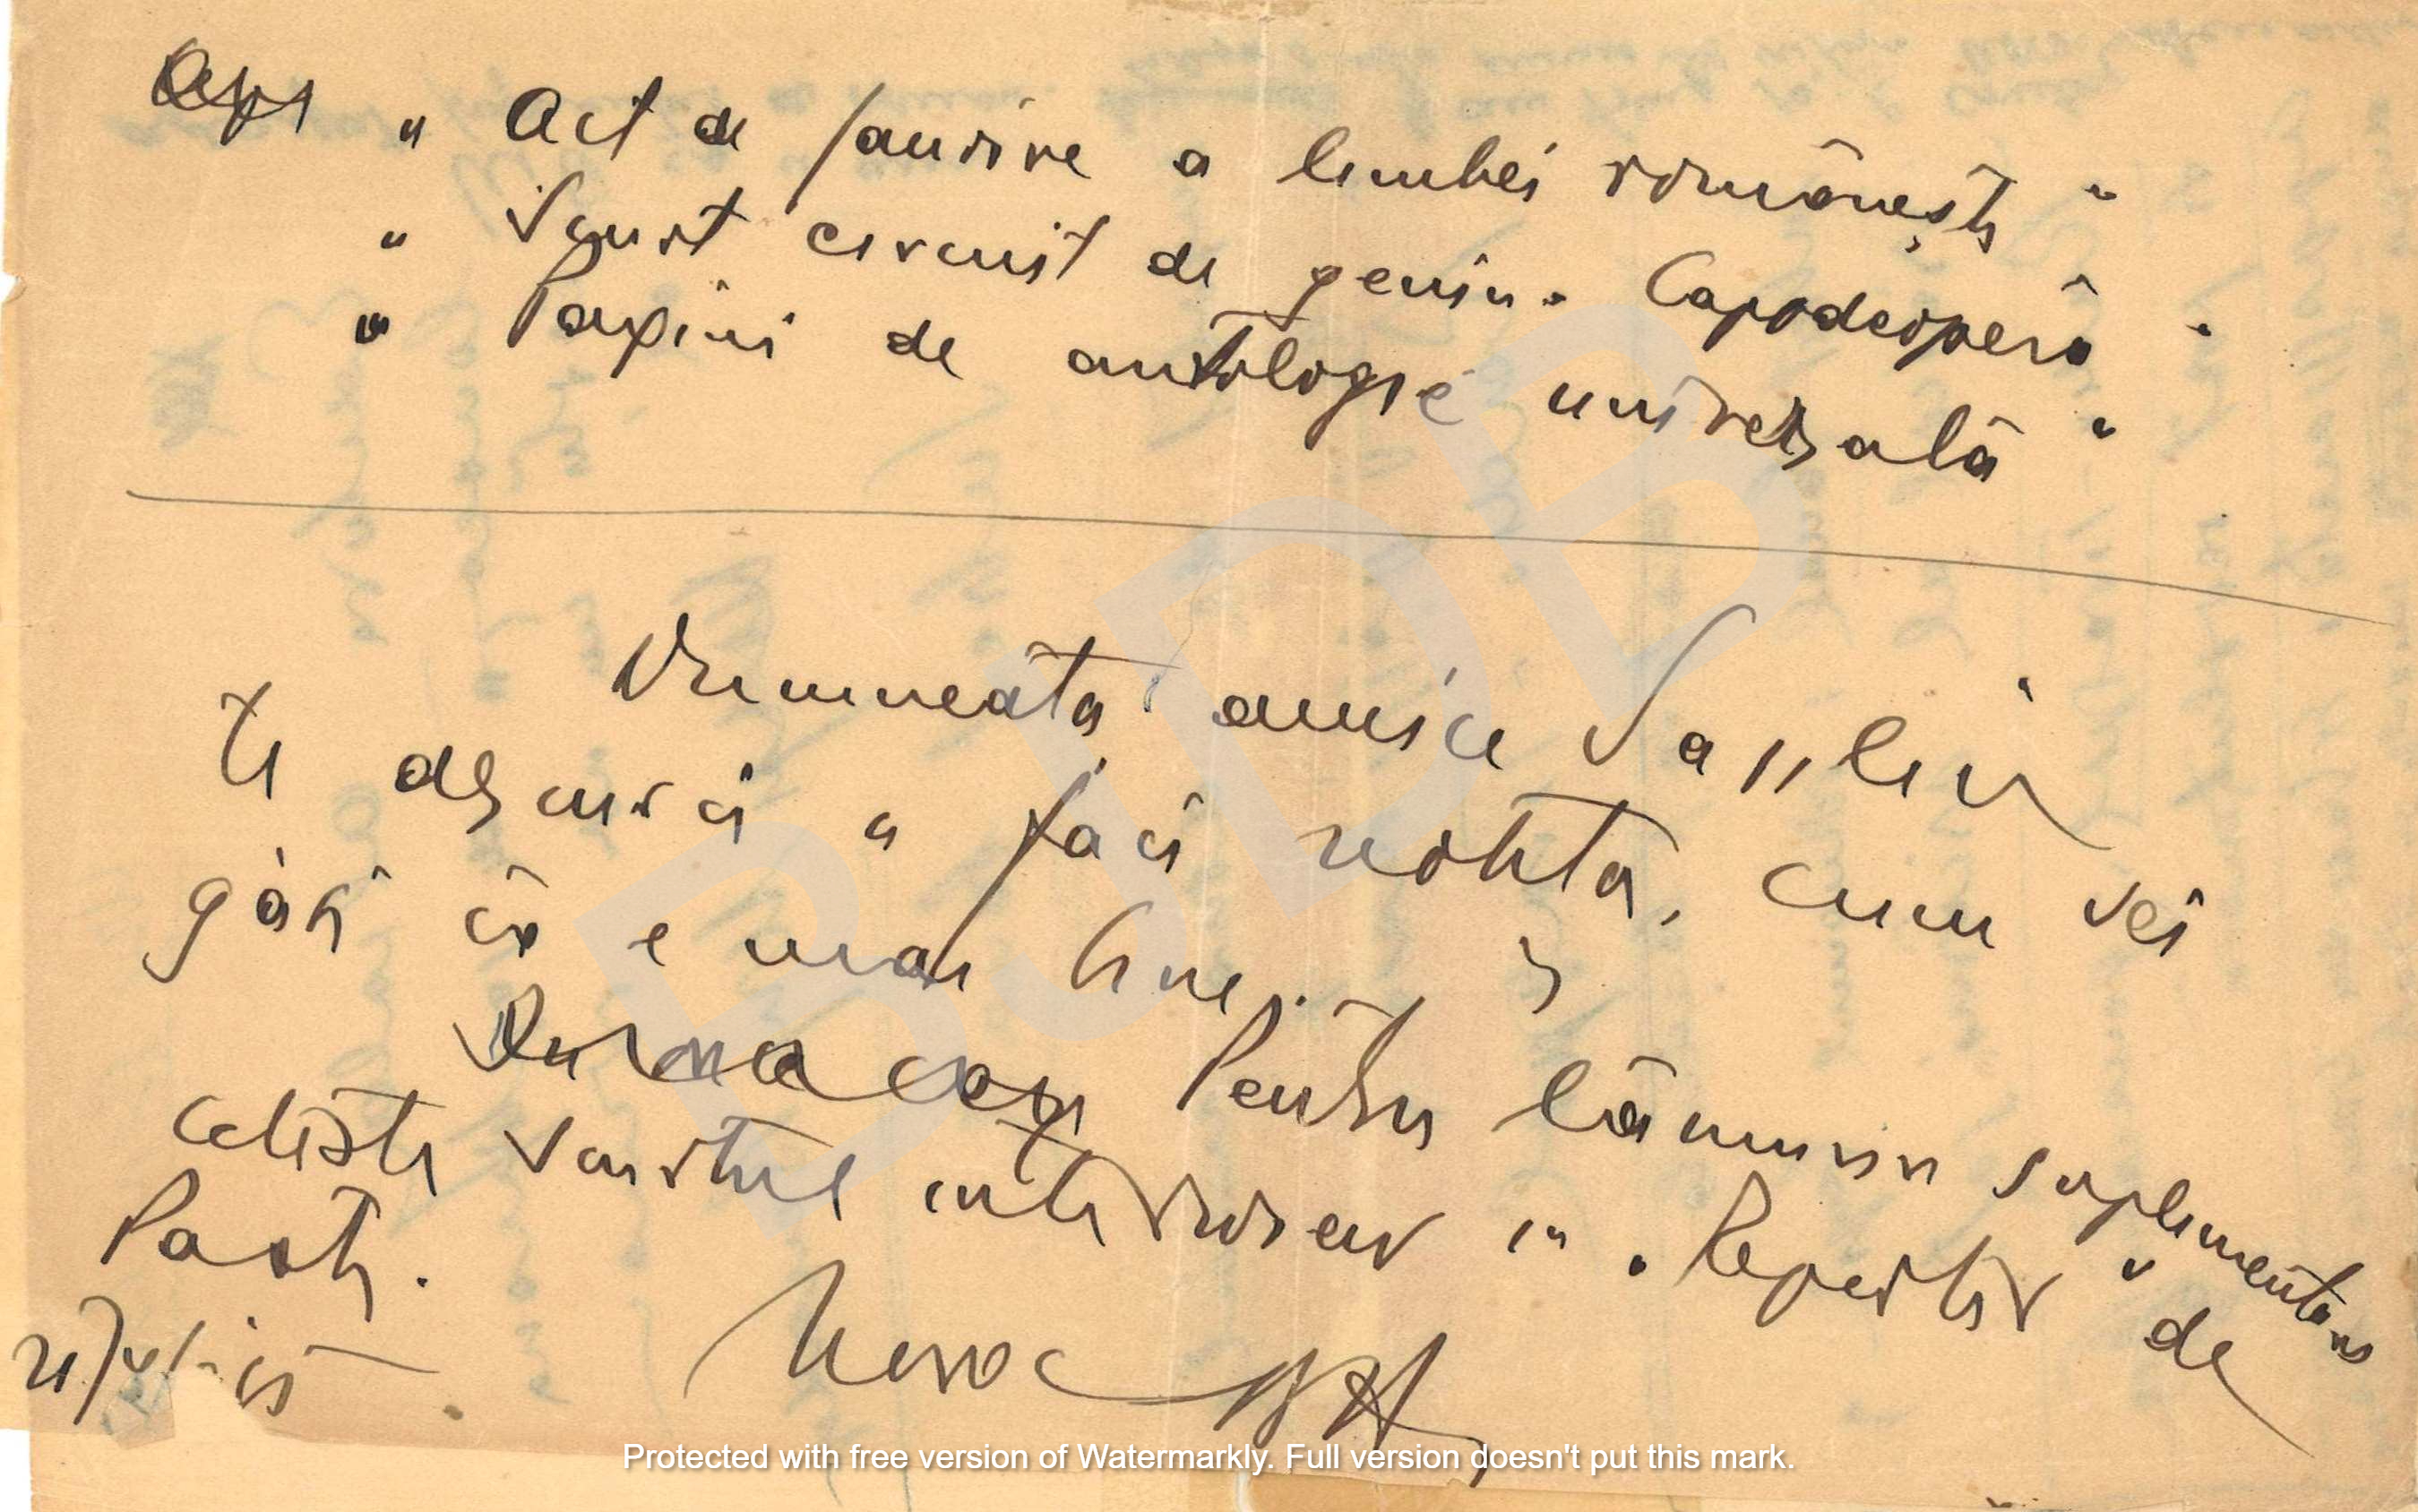 „ Act de faurire a limbei românești "
„ Scurt circuit de geniu. Capodeoperă "
„ Pagini de antologie universală "
Dumneata amice Sa
te descurci " faci notita, cum vei
găsi că e mai bine.
Pentru lămuriri suplimentare
citeste scurtul interview in „Reporter" de
Pasti.
BJDB
Protected with free version of Watermarkly. Full version doesn't put this mark.